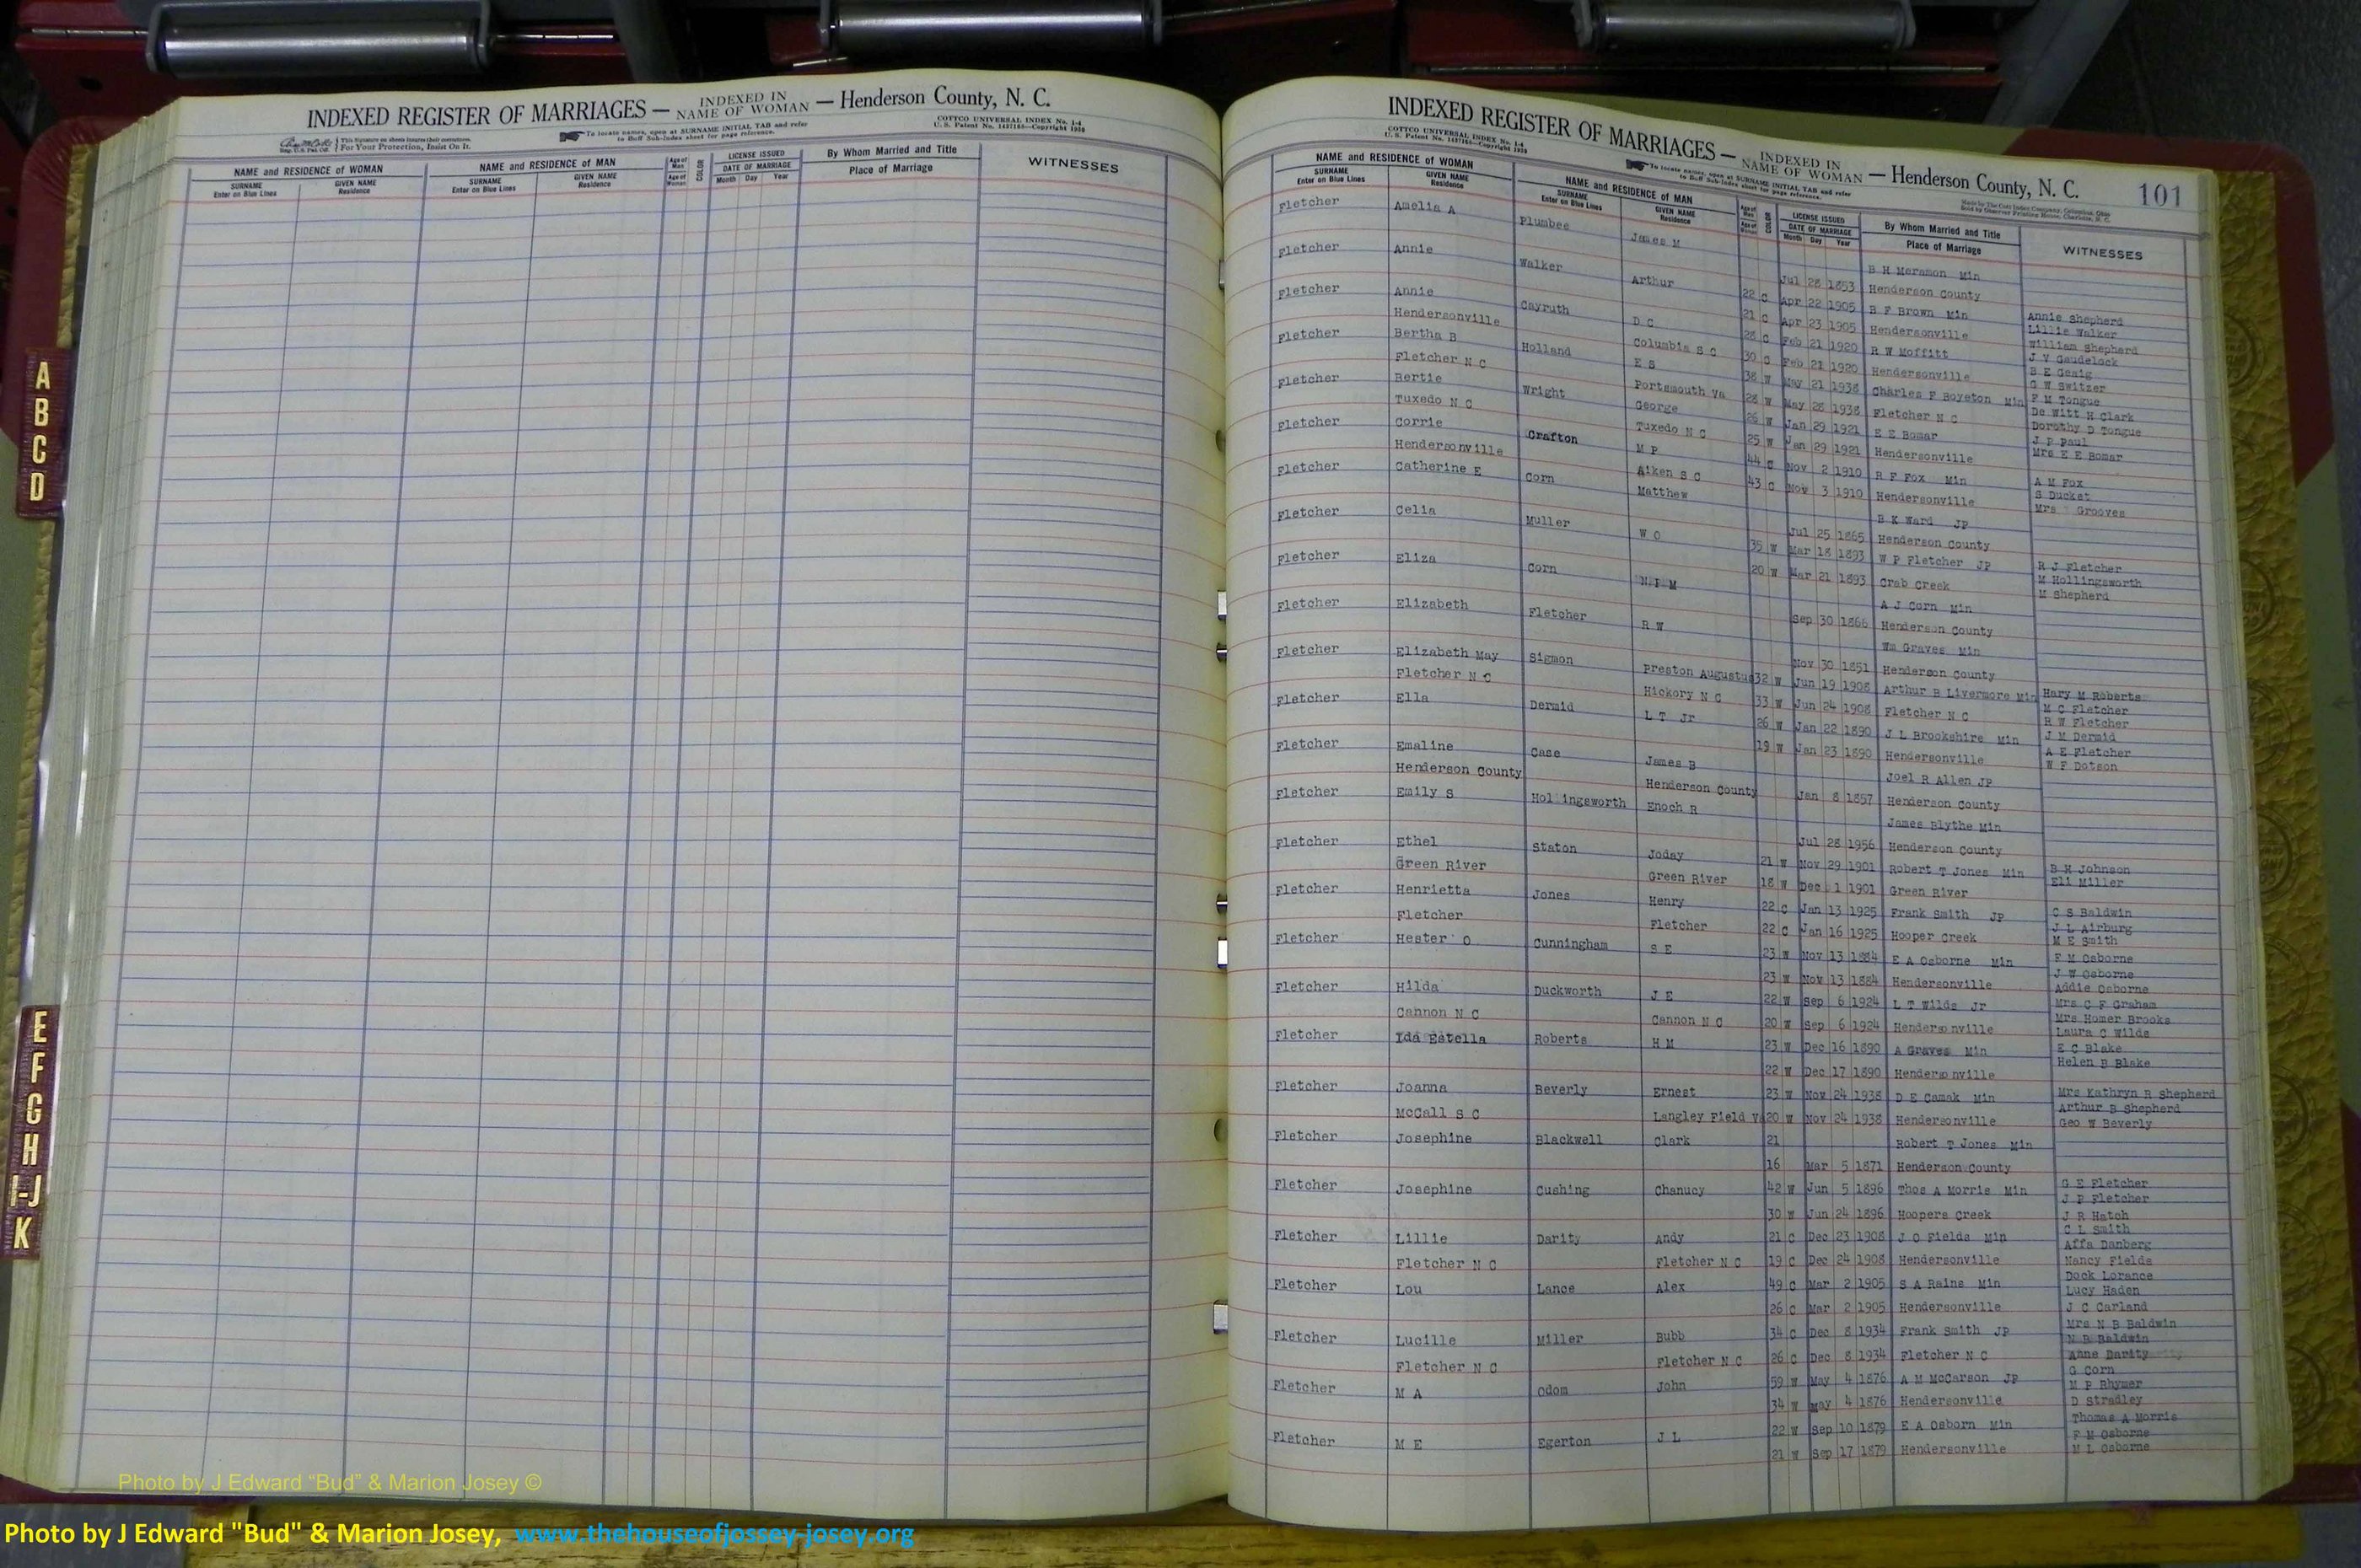 INDEXED REGISTER OF MARRIAGES — INDEXED IN NAME OF WOMAN — Henderson County, N. C.
This Signature on sheets insures their correctness. For Your Protection, Insist On It.
To locate names, open at SURNAME INITIAL TAB and refer to Buff Sub-Index sheet for page reference.
COTTCO UNIVERSAL INDEX No. 1-4
U. S. Patent No. 1437165—Copyright 1950
NAME and RESIDENCE OF WOMAN NAME and RESIDENCE OF MAN Age of Man COLOR LICENSE ISSUED By Whom Married and Title WITNESSES
SURNAME Enter on Blue Lines GIVEN NAME Residence SURNAME Enter on Blue Lines GIVEN NAME Residence Age of Woman DATE OF MARRIAGE Month Day Year Place of Marriage
A
B
C
D
E
F
G
H
I-J
K
INDEXED REGISTER OF MARRIAGES — INDEXED IN NAME OF WOMAN — Henderson County, N. C. 101
COTTCO UNIVERSAL INDEX No. 1-4
To locate names, open at SURNAME INITIAL TAB and refer to Buff Sub-Index sheet for page reference.
NAME and RESIDENCE OF WOMAN NAME and RESIDENCE OF MAN Age of Man COLOR LICENSE ISSUED By Whom Married and Title WITNESSES
SURNAME Enter on Blue Lines GIVEN NAME Residence SURNAME Enter on Blue Lines GIVEN NAME Residence Age of Woman DATE OF MARRIAGE Month Day Year Place of Marriage
Fletcher Amelia A Plumbee James M B H Meramon Min
Jul 28 1853 Henderson County
Fletcher Annie Walker Arthur 22 C Apr 22 1905 B F Brown Min Annie Shepherd
Lillie Walker
21 C Apr 23 1905 Hendersonville William Shepherd
Fletcher Annie Cayruth D C 28 C Feb 21 1920 R W Moffitt J V Gaudelock
B E Genig
Hendersonville Columbia S C 30 C Feb 21 1920 Hendersonville G W Switzer
Fletcher Bertha B Holland E S 38 W May 21 1938 Charles F Boyston Min F M Tongue
De Witt H Clark
Fletcher N C Portsmouth Va 28 W May 28 1938 Fletcher N C Dorothy D Tongue
Fletcher Bertie Wright George 26 W Jan 29 1921 E E Bomar J P Paul
Tuxedo N C Tuxedo N C 25 W Jan 29 1921 Hendersonville Mrs E E Bomar
Fletcher Corrie Crafton M P 44 C Nov 2 1910 R F Fox Min A M Fox
S Ducket
Hendersonville Aiken S C 43 C Nov 3 1910 Hendersonville Mrs Grooves
Fletcher Catherine E Corn Matthew B K Ward JP
Jul 25 1865 Henderson County
Fletcher Celia Muller W O 35 W Mar 18 1893 W P Fletcher JP R J Fletcher
M Hollingsworth
20 W Mar 21 1893 Crab Creek M Shepherd
Fletcher Eliza Corn N P M A J Corn Min
Sep 30 1866 Henderson County
Fletcher Elizabeth Fletcher R W Wm Graves Min
Nov 30 1851 Henderson County
Fletcher Elizabeth May Sigmon Preston Augustus 32 W Jun 19 1908 Arthur B Livermore Min Hary M Roberts
M C Fletcher
Fletcher N C Hickory N C 33 W Jun 24 1908 Fletcher N C R W Fletcher
Fletcher Ella Dermid L T Jr 26 W Jan 22 1890 J L Brookshire Min J M Dermid
A E Fletcher
19 W Jan 23 1890 Hendersonville W F Dotson
Fletcher Emaline Case James B Joel R Allen JP
Henderson County Henderson County Jan 8 1857 Henderson County
Fletcher Emily S Hollingsworth Enoch R James Blythe Min
Jul 28 1956 Henderson County
Fletcher Ethel Staton Joday 21 W Nov 29 1901 Robert T Jones Min B H Johnson
Eli Miller
Green River Green River 18 W Dec 1 1901 Green River
Fletcher Henrietta Jones Henry 22 C Jan 13 1925 Frank Smith JP C S Baldwin
J L Airburg
Fletcher Fletcher 22 C Jan 16 1925 Hooper Creek M E Smith
Fletcher Hester O Cunningham S E 23 W Nov 13 1884 E A Osborne Min F M Osborne
J W Osborne
23 W Nov 13 1884 Hendersonville Addie Osborne
Fletcher Hilda Duckworth J E 22 W Sep 6 1924 L T Wilds Jr Mrs C F Graham
Mrs Homer Brooks
Cannon N C Cannon N C 20 W Sep 6 1924 Hendersonville Laura C Wilds
Fletcher Ida Estella Roberts H M 23 W Dec 16 1890 A Graves Min E C Blake
Helen B Blake
22 W Dec 17 1890 Hendersonville
Fletcher Joanna Beverly Ernest 23 W Nov 24 1938 D E Camak Min Mrs Kathryn R Shepherd
Arthur B Shepherd
McCall S C Langley Field V 20 W Nov 24 1938 Hendersonville Geo W Beverly
Fletcher Josephine Blackwell Clark 21 Robert T Jones Min
16 Mar 5 1871 Henderson County
Fletcher Josephine Cushing Chanucy 42 W Jun 5 1896 Thos A Morris Min G E Fletcher
J P Fletcher
30 W Jun 24 1896 Hoopers Creek J R Hatch
C L Smith
Fletcher Lillie Darity Andy 21 C Dec 23 1908 J O Fields Min Affa Danberg
Nancy Fields
Fletcher N C Fletcher N C 19 C Dec 24 1908 Hendersonville Dock Lorance
Fletcher Lou Lance Alex 49 C Mar 2 1905 S A Rains Min Lucy Haden
26 C Mar 2 1905 Hendersonville J C Garland
Fletcher Lucille Miller Bubb 34 C Dec 8 1934 Frank Smith JP Mrs N B Baldwin
N B Baldwin
Fletcher N C Fletcher N C 26 C Dec 8 1934 Fletcher N C Anne Darity
Fletcher M A Odom John 59 W May 4 1876 A M McCarson JP G Corn
M P Rhymer
34 W May 4 1876 Hendersonville D Stradley
Fletcher M E Egerton J L 22 W Sep 10 1879 E A Osborn Min Thomas A Morris
F M Osborne
21 W Sep 17 1879 Hendersonville M L Osborne
Photo by J Edward “Bud” & Marion Josey ©
Photo by J Edward "Bud" & Marion Josey, www.thehouseofjossey-josey.org